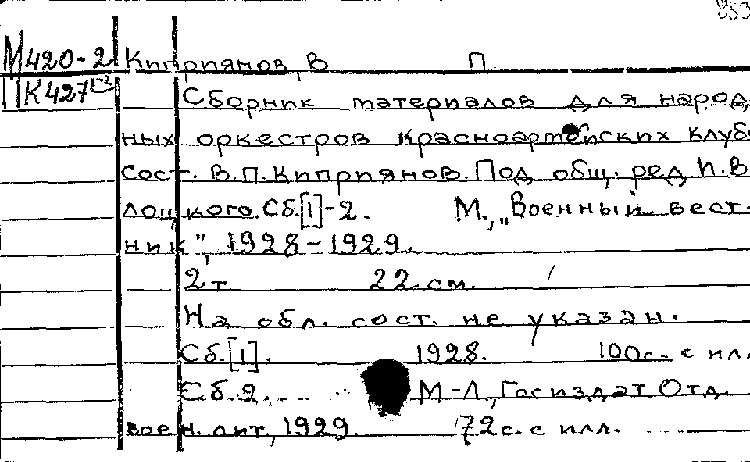 353
М420-2 Киприянов, В П
К427
Сборник материалов для народ
ных оркестров красноармейских клуб
Сост. В.П.Киприянов. Под общ. ред. И.В
лоцкого. Сб.[1]-2. М., „Военный вест-
ник", 1928-1929.
2 т 22 см.
На обл. сост. не указан.
Сб.[1]. 1928. 100с. с ил.
Сб.2. М-Л, Госиздат Отд.
воен. лит, 1929. 72 с. с илл.